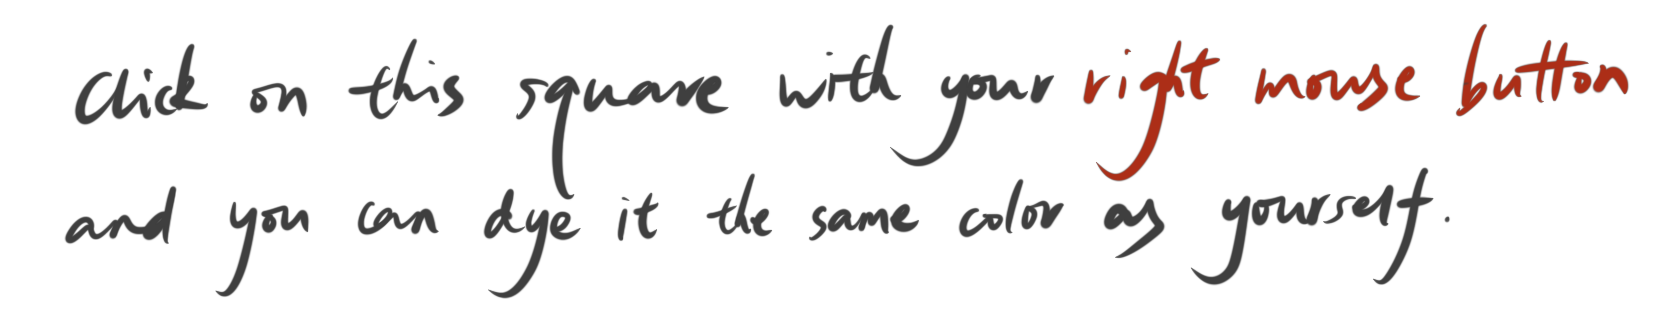 Click on this square with your right mouse button
and you can dye it the same color as yourself.